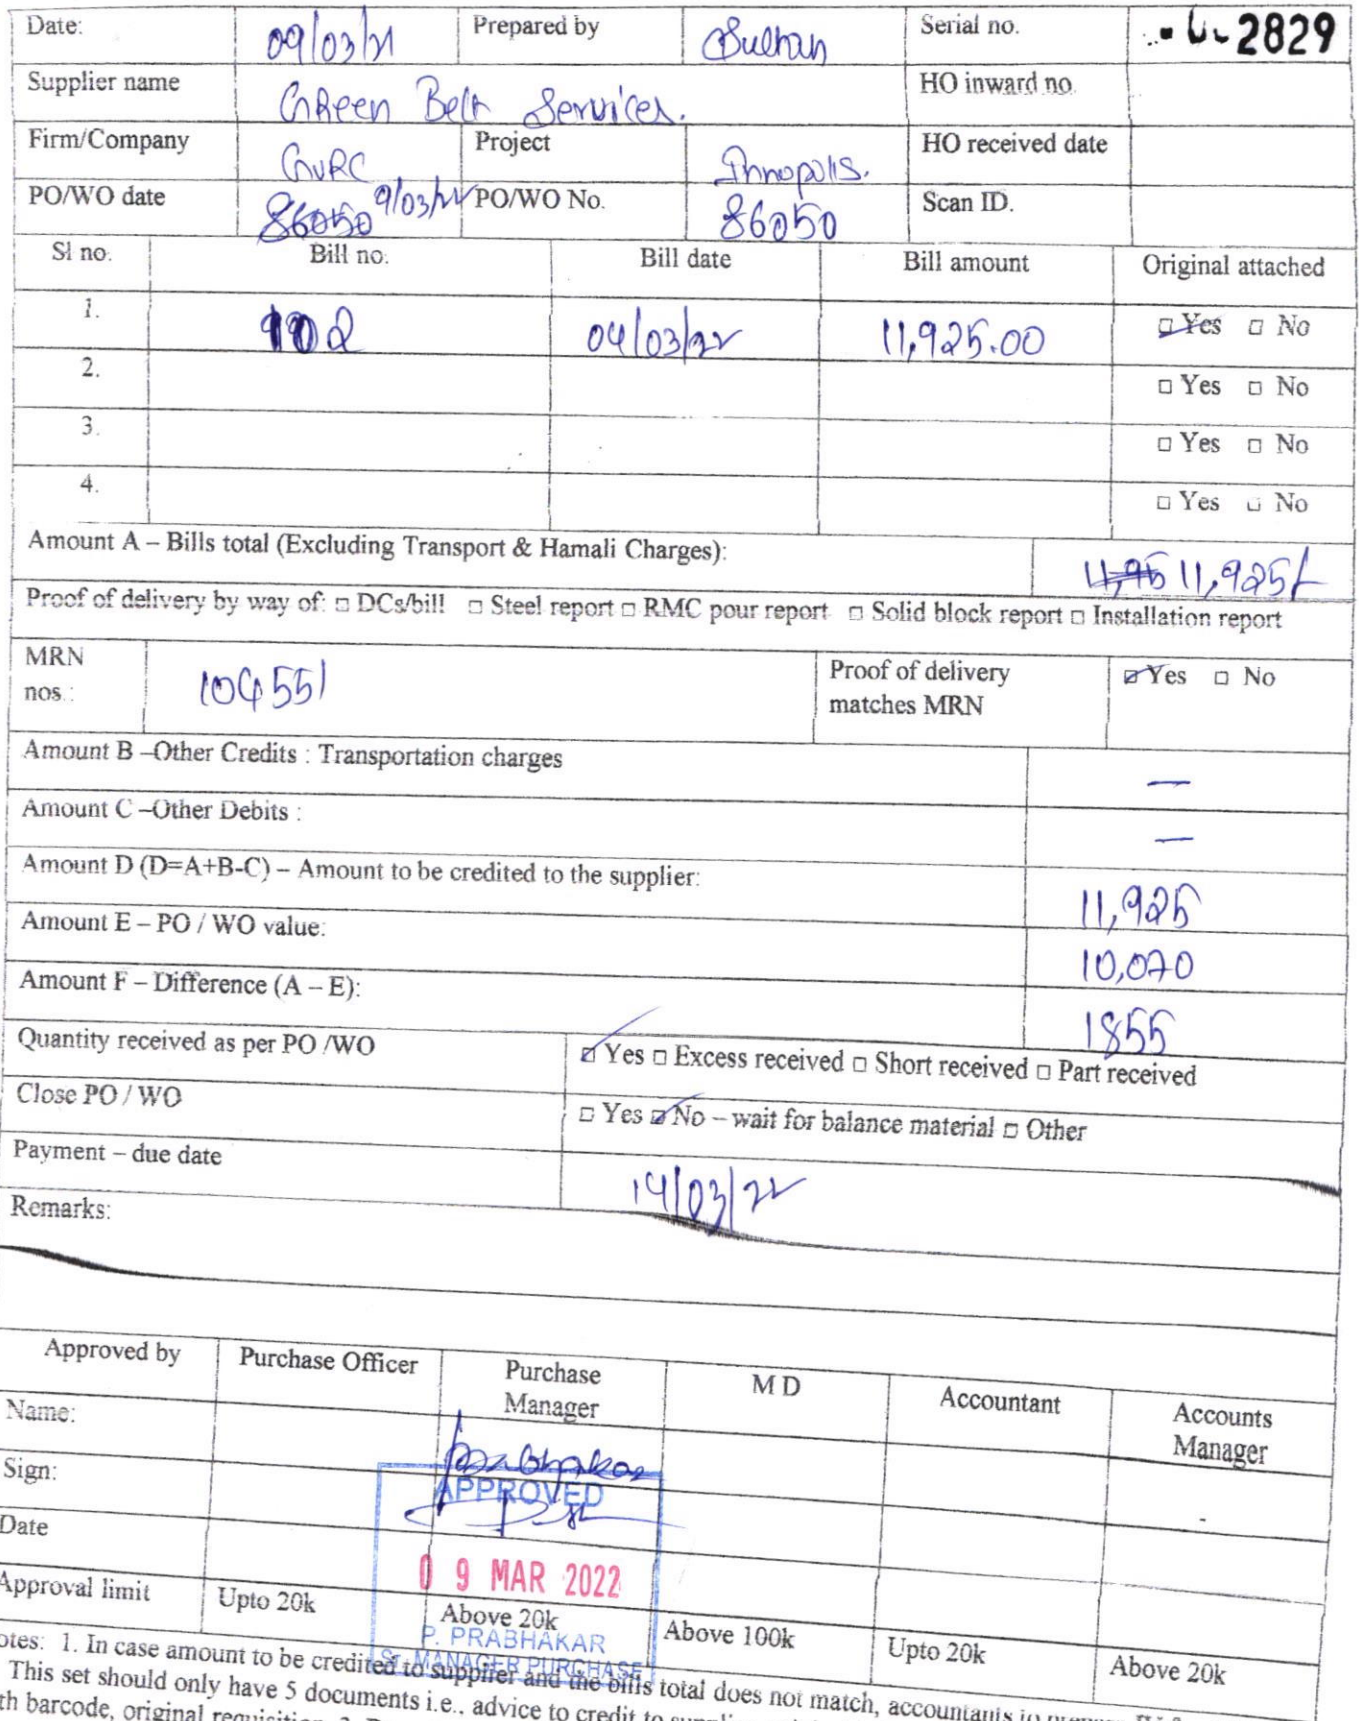 Date: 09/03/21 Prepared by Sultan Serial no. 2829
Supplier name GReen Belt Services. HO inward no.
Firm/Company GVRC Project Innopolis. HO received date
PO/WO date 86050 9/03/22 PO/WO No. 86050 Scan ID.
Sl no. Bill no. Bill date Bill amount Original attached
1. 102 04/03/22 11,925.00 □ Yes □ No
2. □ Yes □ No
3. □ Yes □ No
4. □ Yes □ No
Amount A – Bills total (Excluding Transport & Hamali Charges): 11,925/-
Proof of delivery by way of: □ DCs/bill □ Steel report □ RMC pour report □ Solid block report □ Installation report
MRN nos.: 104551 Proof of delivery matches MRN □ Yes □ No
Amount B –Other Credits : Transportation charges —
Amount C –Other Debits : —
Amount D (D=A+B-C) – Amount to be credited to the supplier: 11,925
Amount E – PO / WO value: 10,070
Amount F – Difference (A – E): 1855
Quantity received as per PO /WO □ Yes □ Excess received □ Short received □ Part received
Close PO / WO □ Yes □ No – wait for balance material □ Other
Payment – due date 14/03/22
Remarks:
Approved by Purchase Officer Purchase Manager M D Accountant Accounts Manager
Name: Prabhakar
Sign: APPROVED
Date 09 MAR 2022
Approval limit Upto 20k Above 20k Above 100k Upto 20k Above 20k
P. PRABHAKAR
Sr. MANAGER PURCHASE
otes: 1. In case amount to be credited to supplier and the bills total does not match, accountants to
This set should only have 5 documents i.e., advice to credit to
th barcode, original requisition